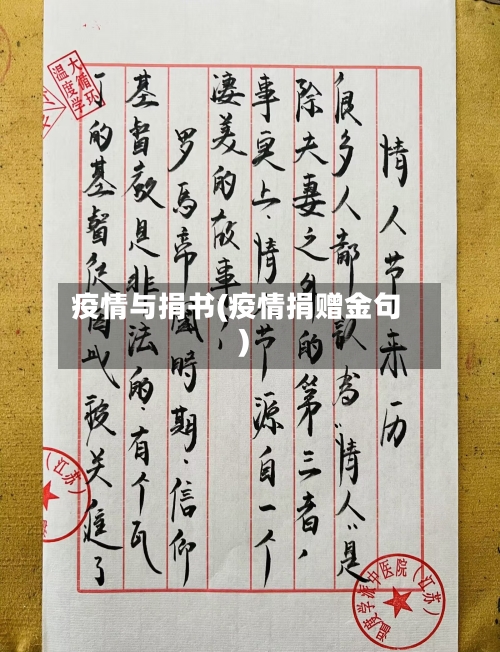 情人节来历
很多人都认为“情人”是
除夫妻之外的第三者，
事实上、情人节源自一个
凄美的故事，
罗馬帝國時期、信仰
基督教是非法的、有个瓦
的基督徒因此被关進了
疫情与捐书(疫情捐赠金句
)
大循环
温度学
温度学派中医院（江苏）
（江苏）